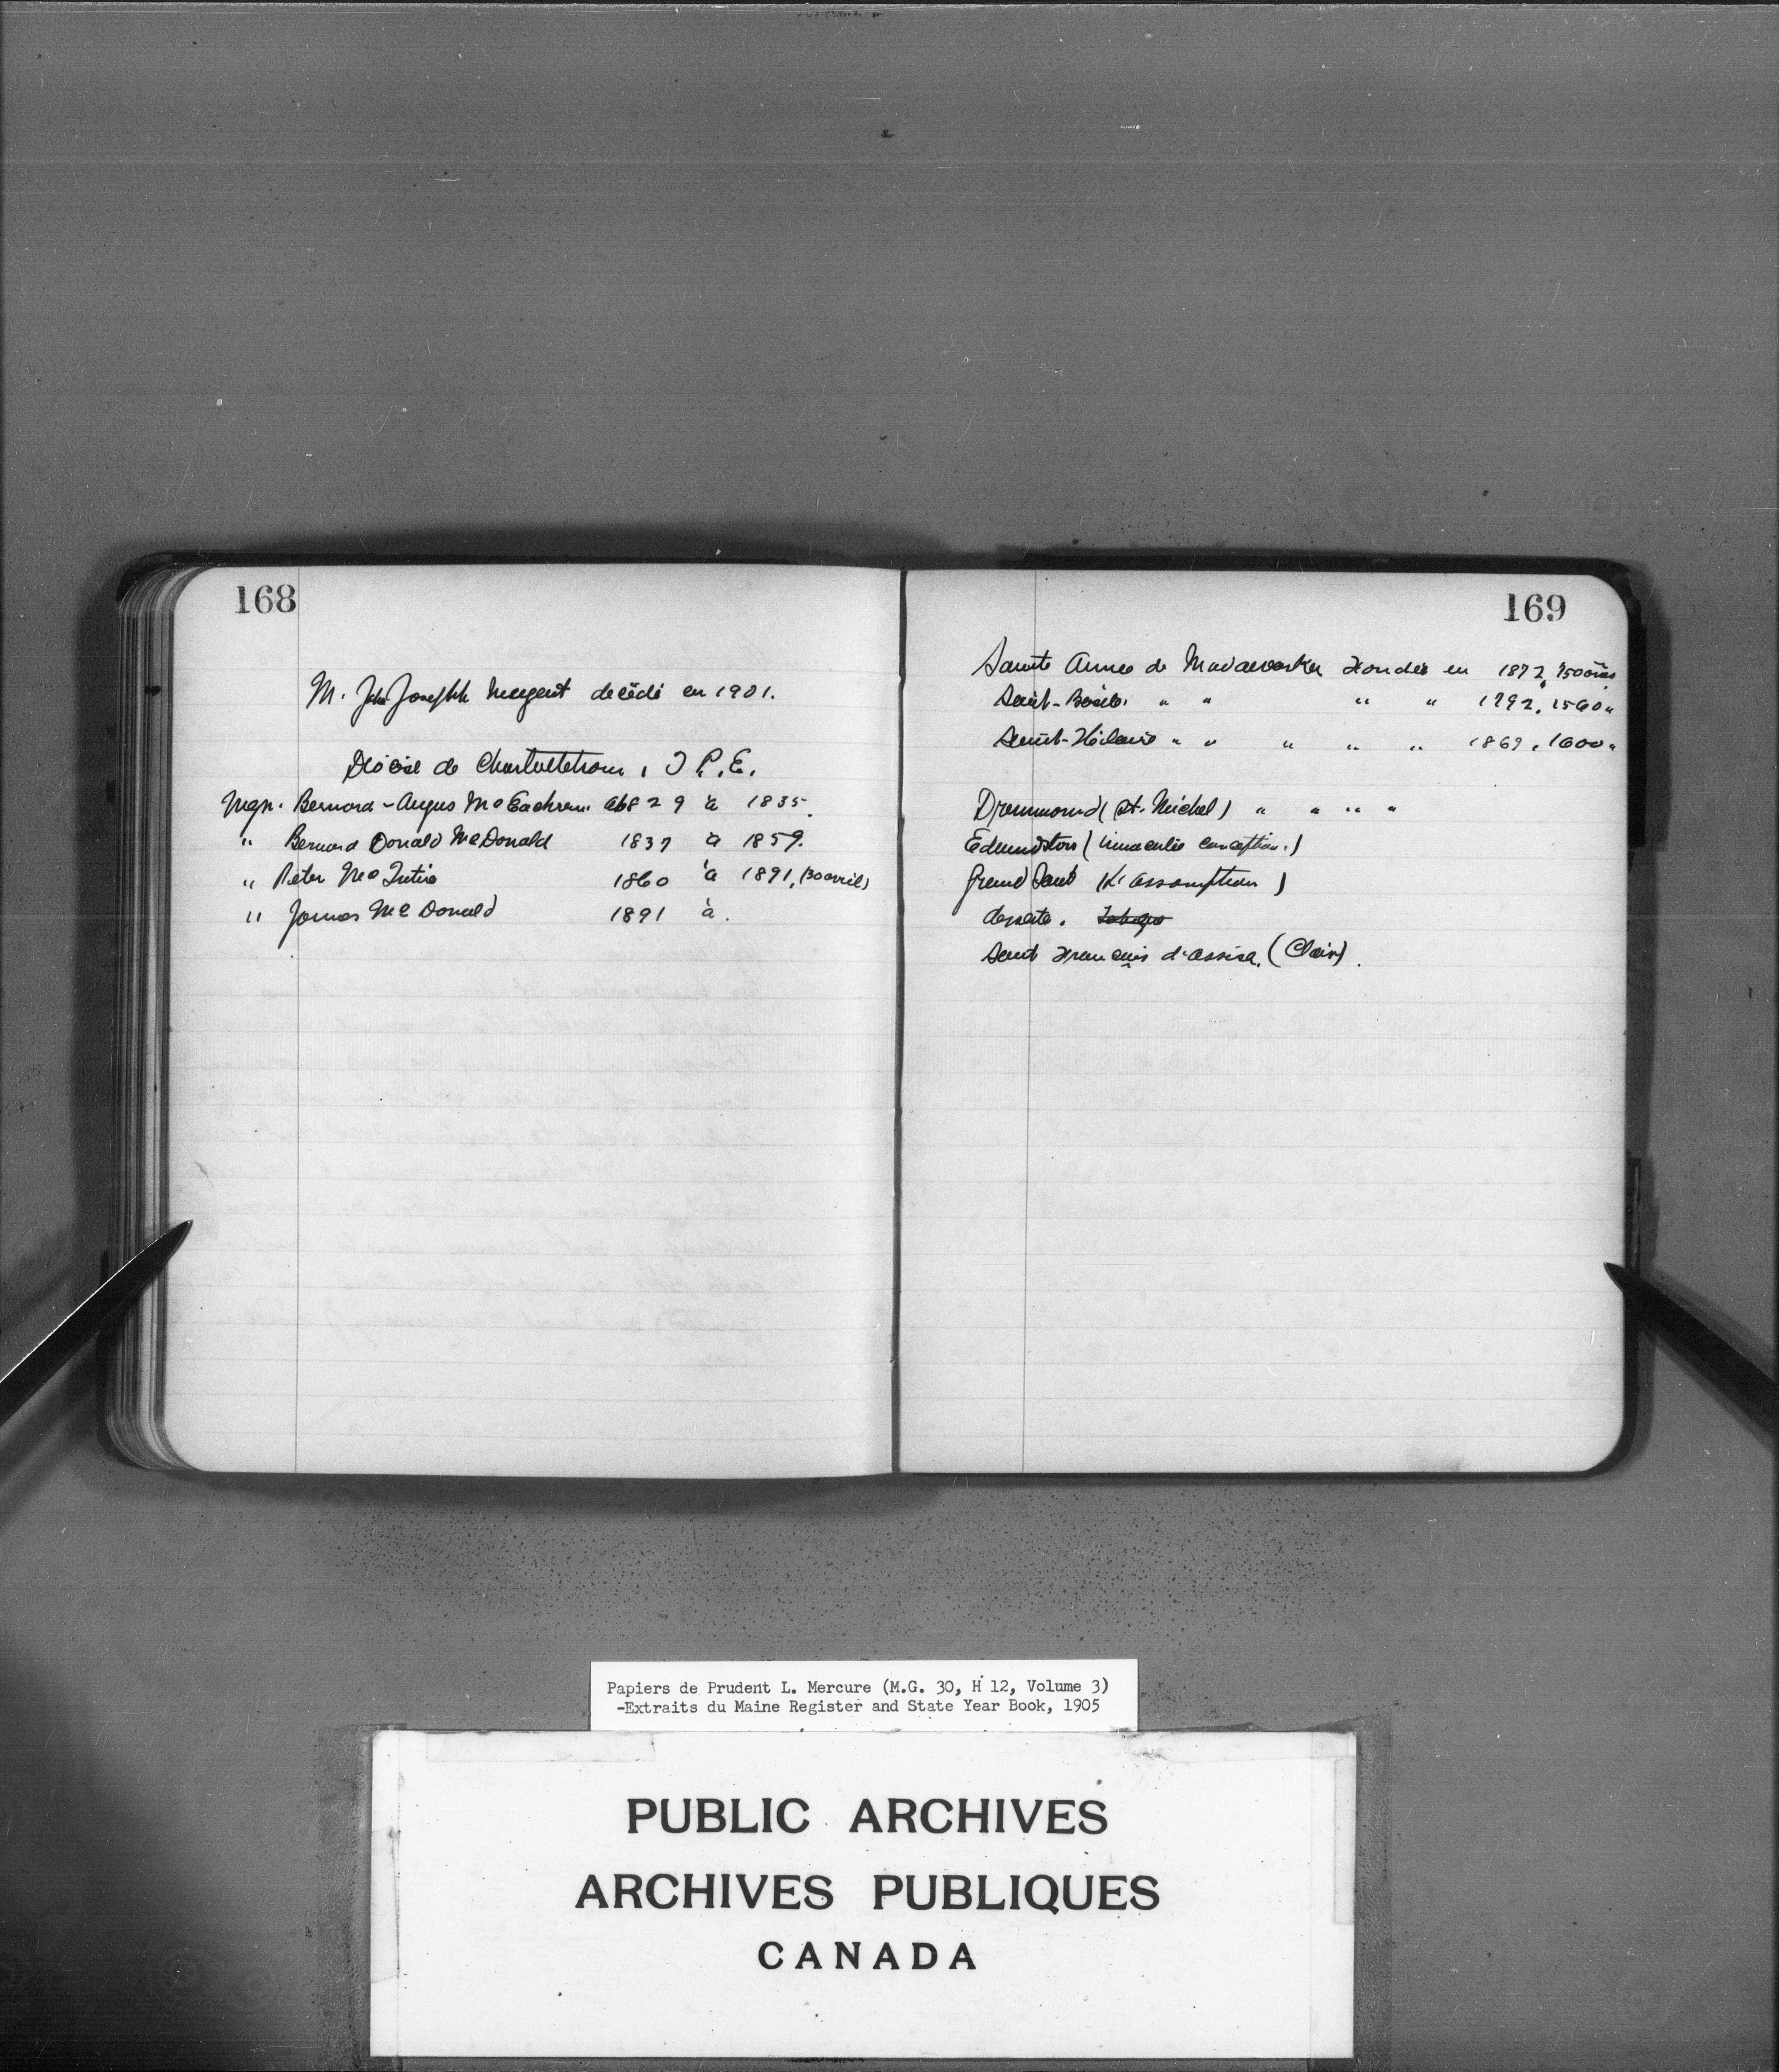 168
M. John Joseph Nugent décédé en 1901.
Diocèse de Charlottetown, I P.E.
Mgr. Bernard-Angus McEachren 1829 à 1835.
" Bernard Donald McDonald 1837 à 1859.
" Peter McIntire 1860 à 1891, (30 avril)
" James McDonald 1891 à.
169
Sainte Anne de Madawaska Fondée en 1872, 750 âmes
Saint-Basile " " " " 1792, 1560 "
Saint-Hilaire " " " " " 1869, 1600 "
Drummond (St. Michel) " " " "
Edmundston (Immaculée conception.)
Grand Sault (L'assomption)
Saint François d'assise. (Clair).
Papiers de Prudent L. Mercure (M.G. 30, H 12, Volume 3)
-Extraits du Maine Register and State Year Book, 1905
PUBLIC ARCHIVES
ARCHIVES PUBLIQUES
CANADA